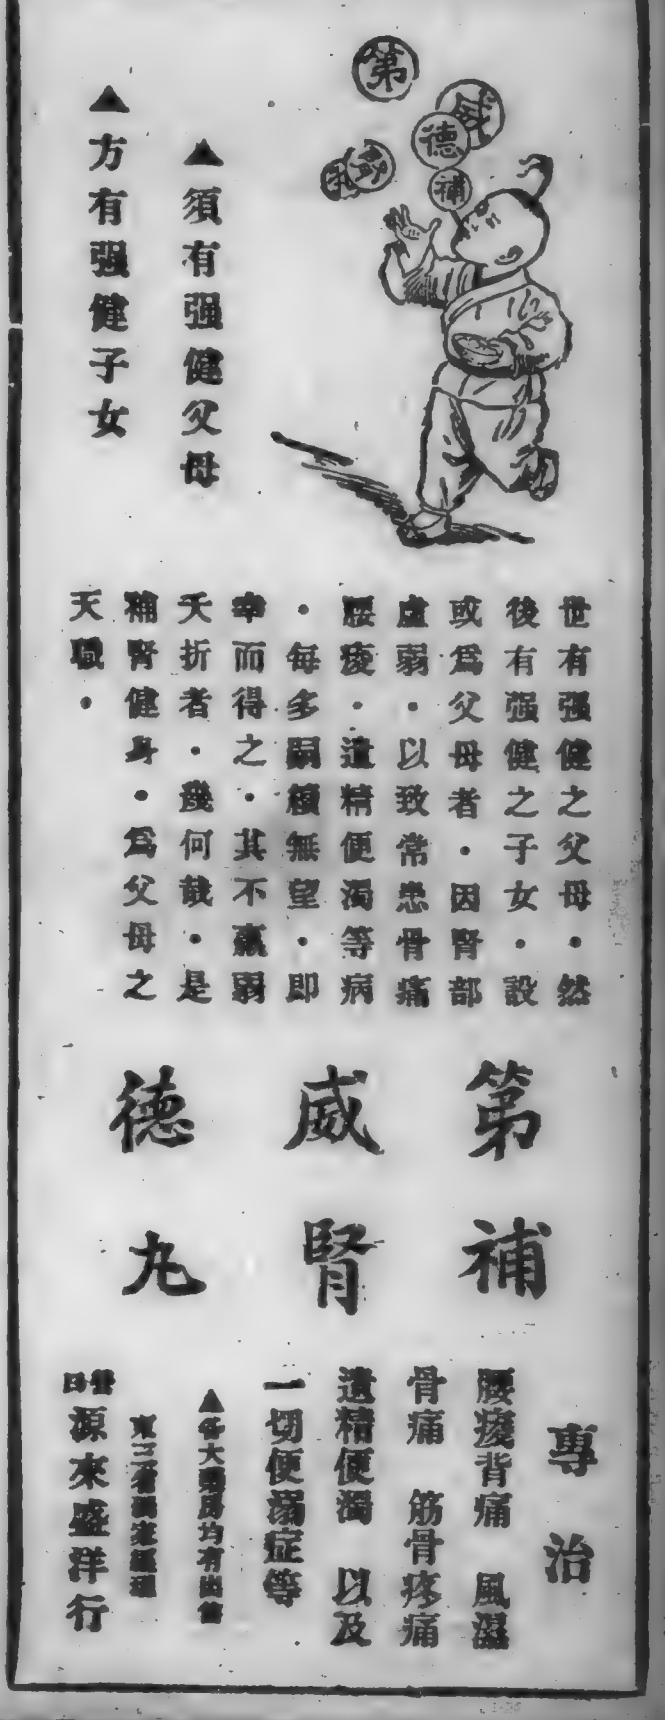 第
威
德
補
▲須有强健父母
▲方有强健子女
世有强健之父母・然
後有强健之子女・設
或爲父母者・因腎部
虛弱・以致常患骨痛
腰痠・遺精便濁等病
・每多嗣續無望・卽
幸而得之・其不羸弱
夭折者・幾何哉・是
補腎健身・爲父母之
天職・
第威德
補腎丸
專治
腰痠背痛 風濕
骨痛 筋骨疼痛
遺精便濁 以及
一切便溺症等
▲各大藥房均有出售
東三省獨家經理
營口
源來盛洋行